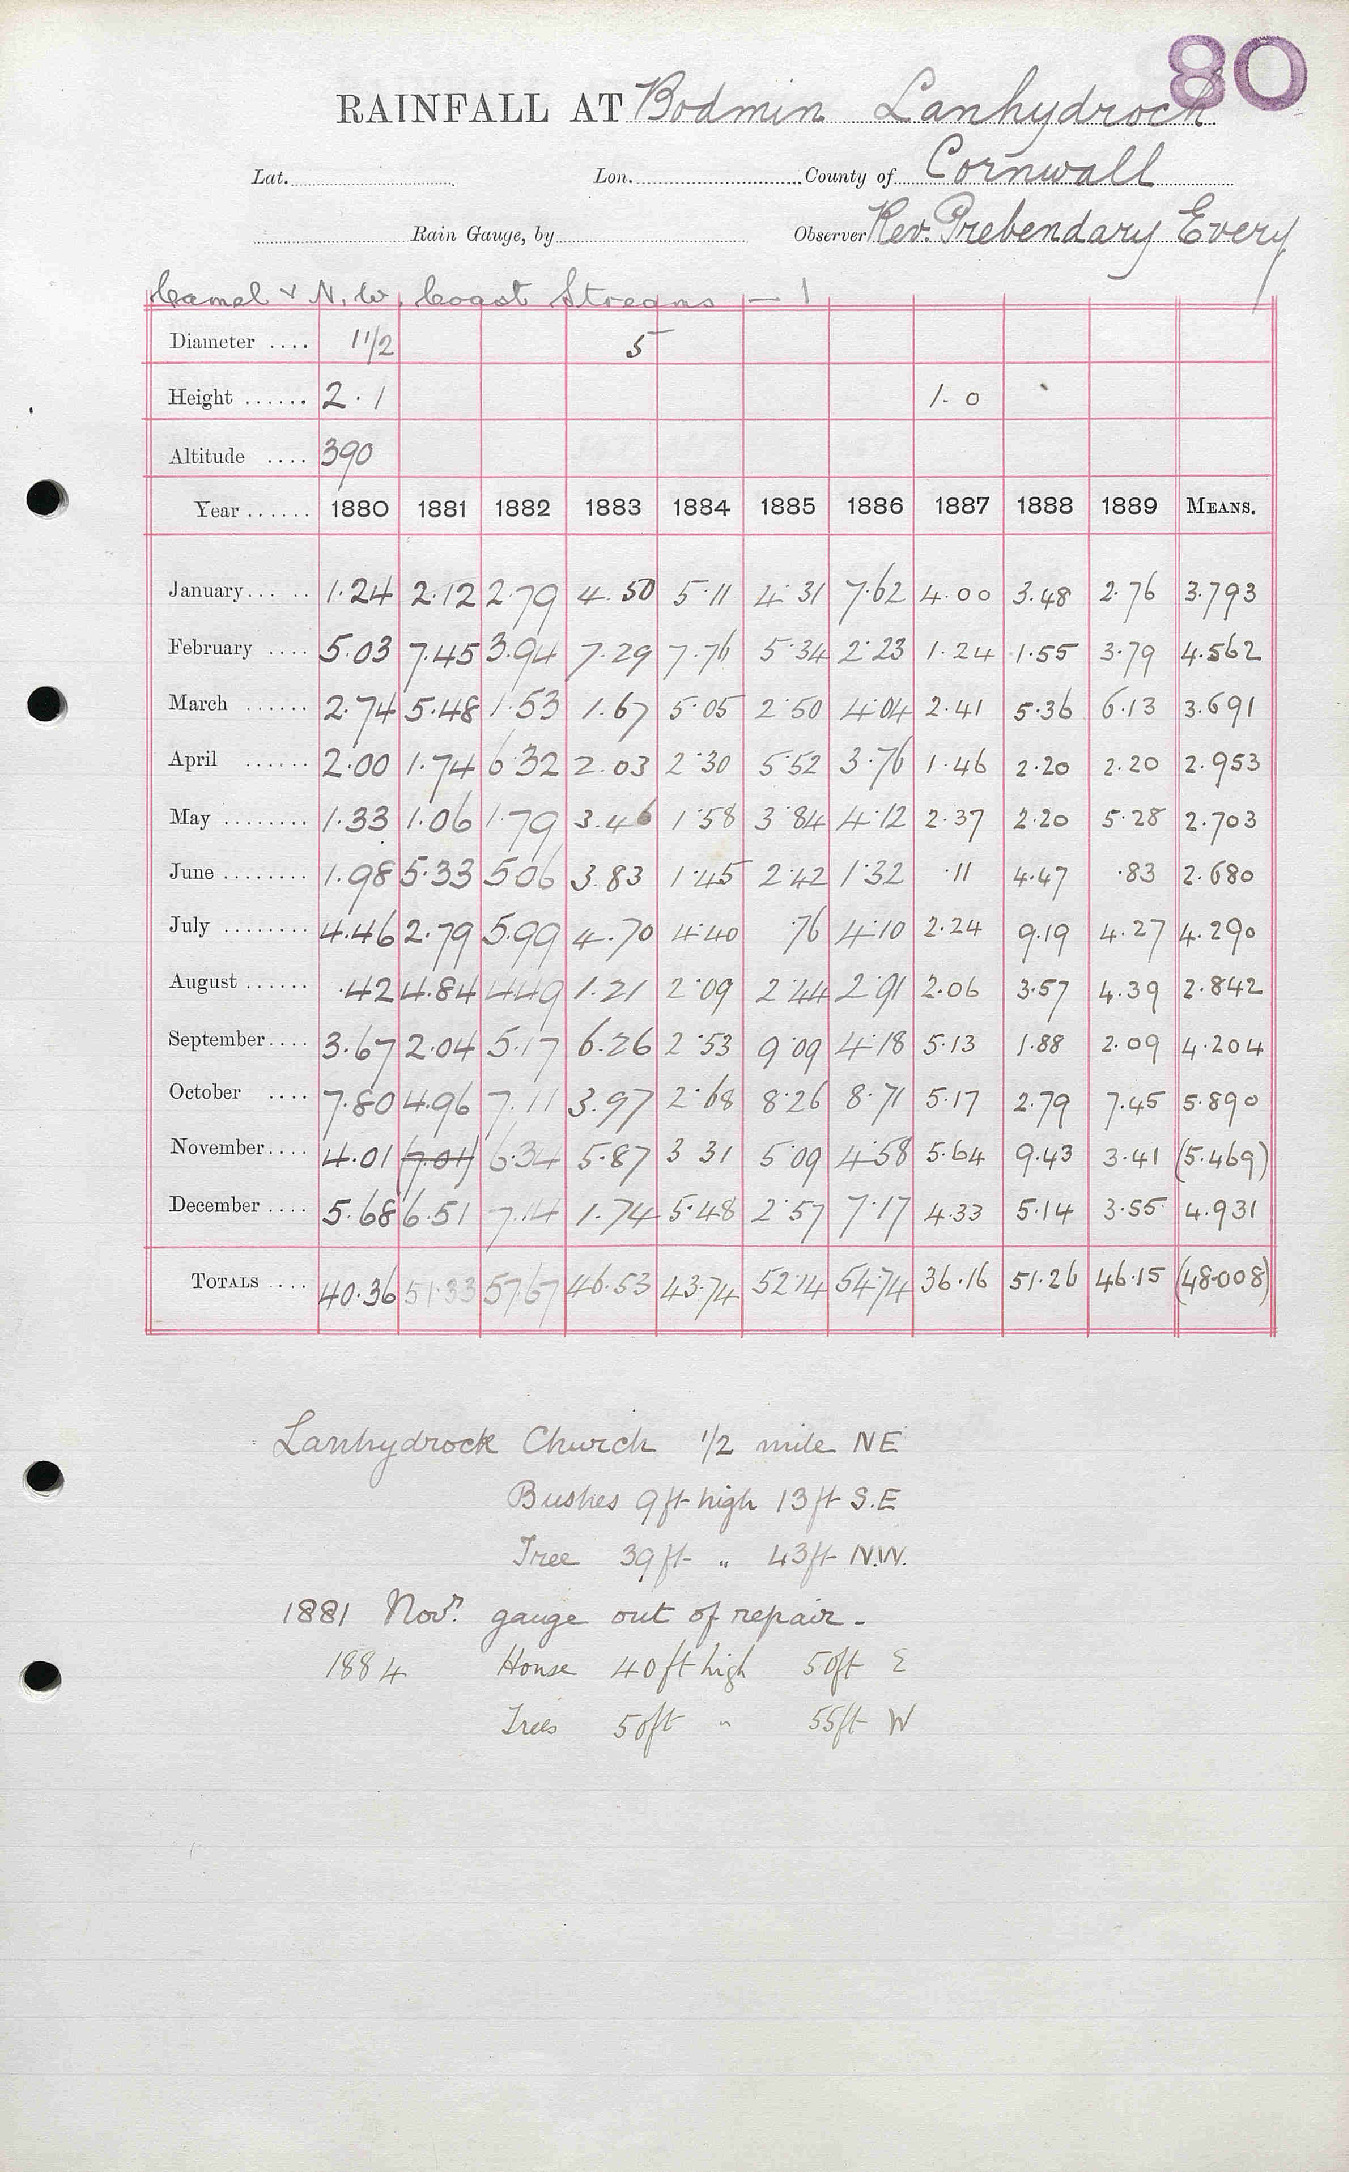 80
RAINFALL AT Bodmin Lanhydrock
Lat. Lon. County of Cornwall
Rain Gauge, by Observer Rev. Prebendary Every
Camel & N.W. Coast Streams — 1
Diameter .... 11/2 5
Height ...... 2.1 1.0
Altitude .... 390
Year ...... 1880 1881 1882 1883 1884 1885 1886 1887 1888 1889 MEANS.
January ..... 1.24 2.12 2.79 4.50 5.11 4.31 7.62 4.00 3.48 2.76 3.793
February .... 5.03 7.45 3.94 7.29 7.76 5.34 2.23 1.24 1.55 3.79 4.562
March ...... 2.74 5.48 1.53 1.67 5.05 2.50 4.04 2.41 5.36 6.13 3.691
April ...... 2.00 1.74 6.32 2.03 2.30 5.52 3.76 1.46 2.20 2.20 2.953
May ........ 1.33 1.06 1.79 3.46 1.58 3.84 4.12 2.37 2.20 5.28 2.703
June ........ 1.98 5.33 5.06 3.83 1.45 2.42 1.32 .11 4.47 .83 2.680
July ........ 4.46 2.79 5.99 4.70 4.40 .76 4.10 2.24 9.19 4.27 4.290
August ...... .42 4.84 4.49 1.21 2.09 2.44 2.91 2.06 3.57 4.39 2.842
September .... 3.67 2.04 5.17 6.26 2.53 9.09 4.18 5.13 1.88 2.09 4.204
October .... 7.80 4.96 7.11 3.97 2.68 8.26 8.71 5.17 2.79 7.45 5.890
November .... 4.01 (7.01) 6.34 5.87 3.31 5.09 4.58 5.64 9.43 3.41 (5.469)
December .... 5.68 6.51 7.14 1.74 5.48 2.57 7.17 4.33 5.14 3.55 4.931
TOTALS .... 40.36 51.33 57.67 46.53 43.74 52.14 54.74 36.16 51.26 46.15 (48.008)
Lanhydrock Church 1/2 mile NE
Bushes 9ft high 13ft S.E
Tree 39ft " 43ft N.W.
1881 Novr. gauge out of repair -
1884 House 40ft high 50ft E
Trees 50ft " 55ft W